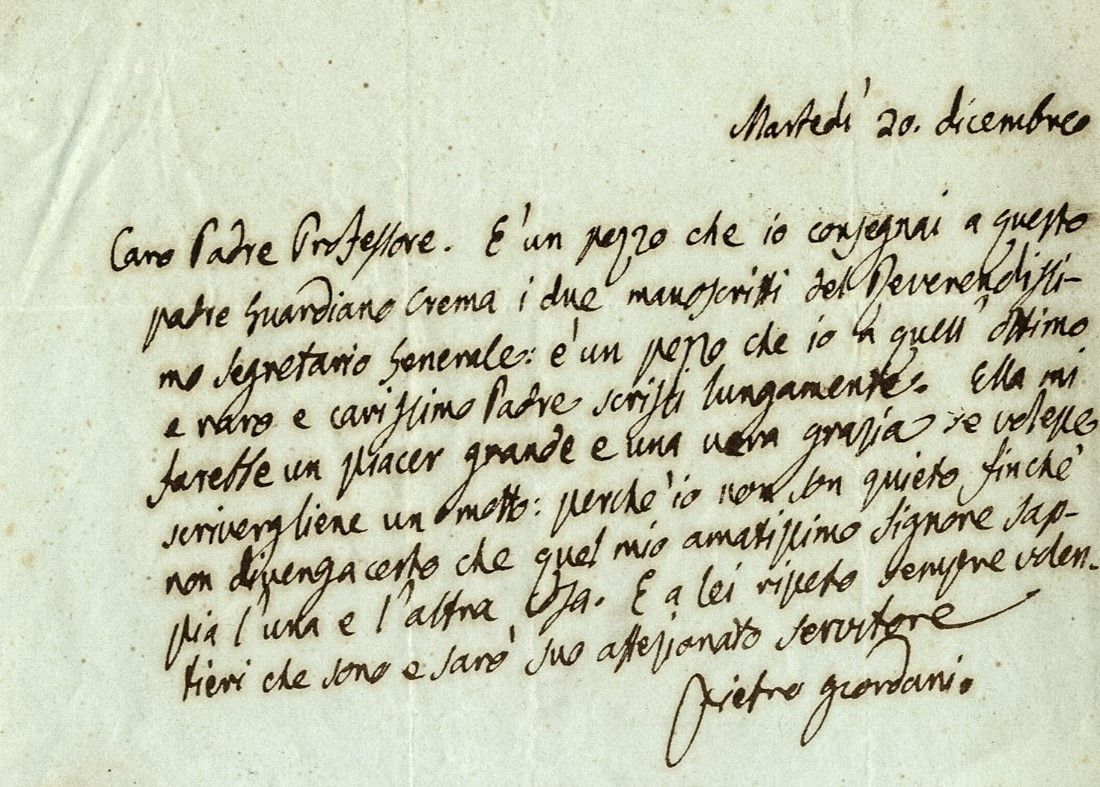 Martedì 20. dicembre
Caro Padre Professore. È un pezzo che io consegnai a questo
padre Guardiano Crema i due manoscritti del Reverendissi-
mo Segretario Generale: è un pezzo che io a quell'ottimo
e raro e carissimo Padre scrissi lungamente. Ella mi
farebbe un piacer grande e una vera grazia se volesse
scrivergliene un motto: perchè io non son quieto finchè
non divenga certo che quel mio amatissimo signore sap-
pia l'una e l'altra cosa. E a lei ripeto sempre volen-
tieri che sono e sarò suo affezionato servitore
pietro giordani.